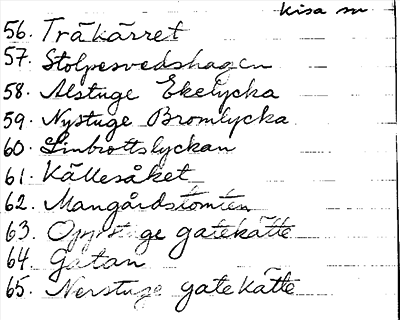 Kisa sn
56. Träkärret
57. Stolpesvedshagen
58. Alstuge Ekelycka
59. Nystuge Bromlycka
60. Linbrottslyckan
61. Källesåket
62. Mangårdstomten
63. gatekätte
64. Gatan
65. Nerstuge gatekätte